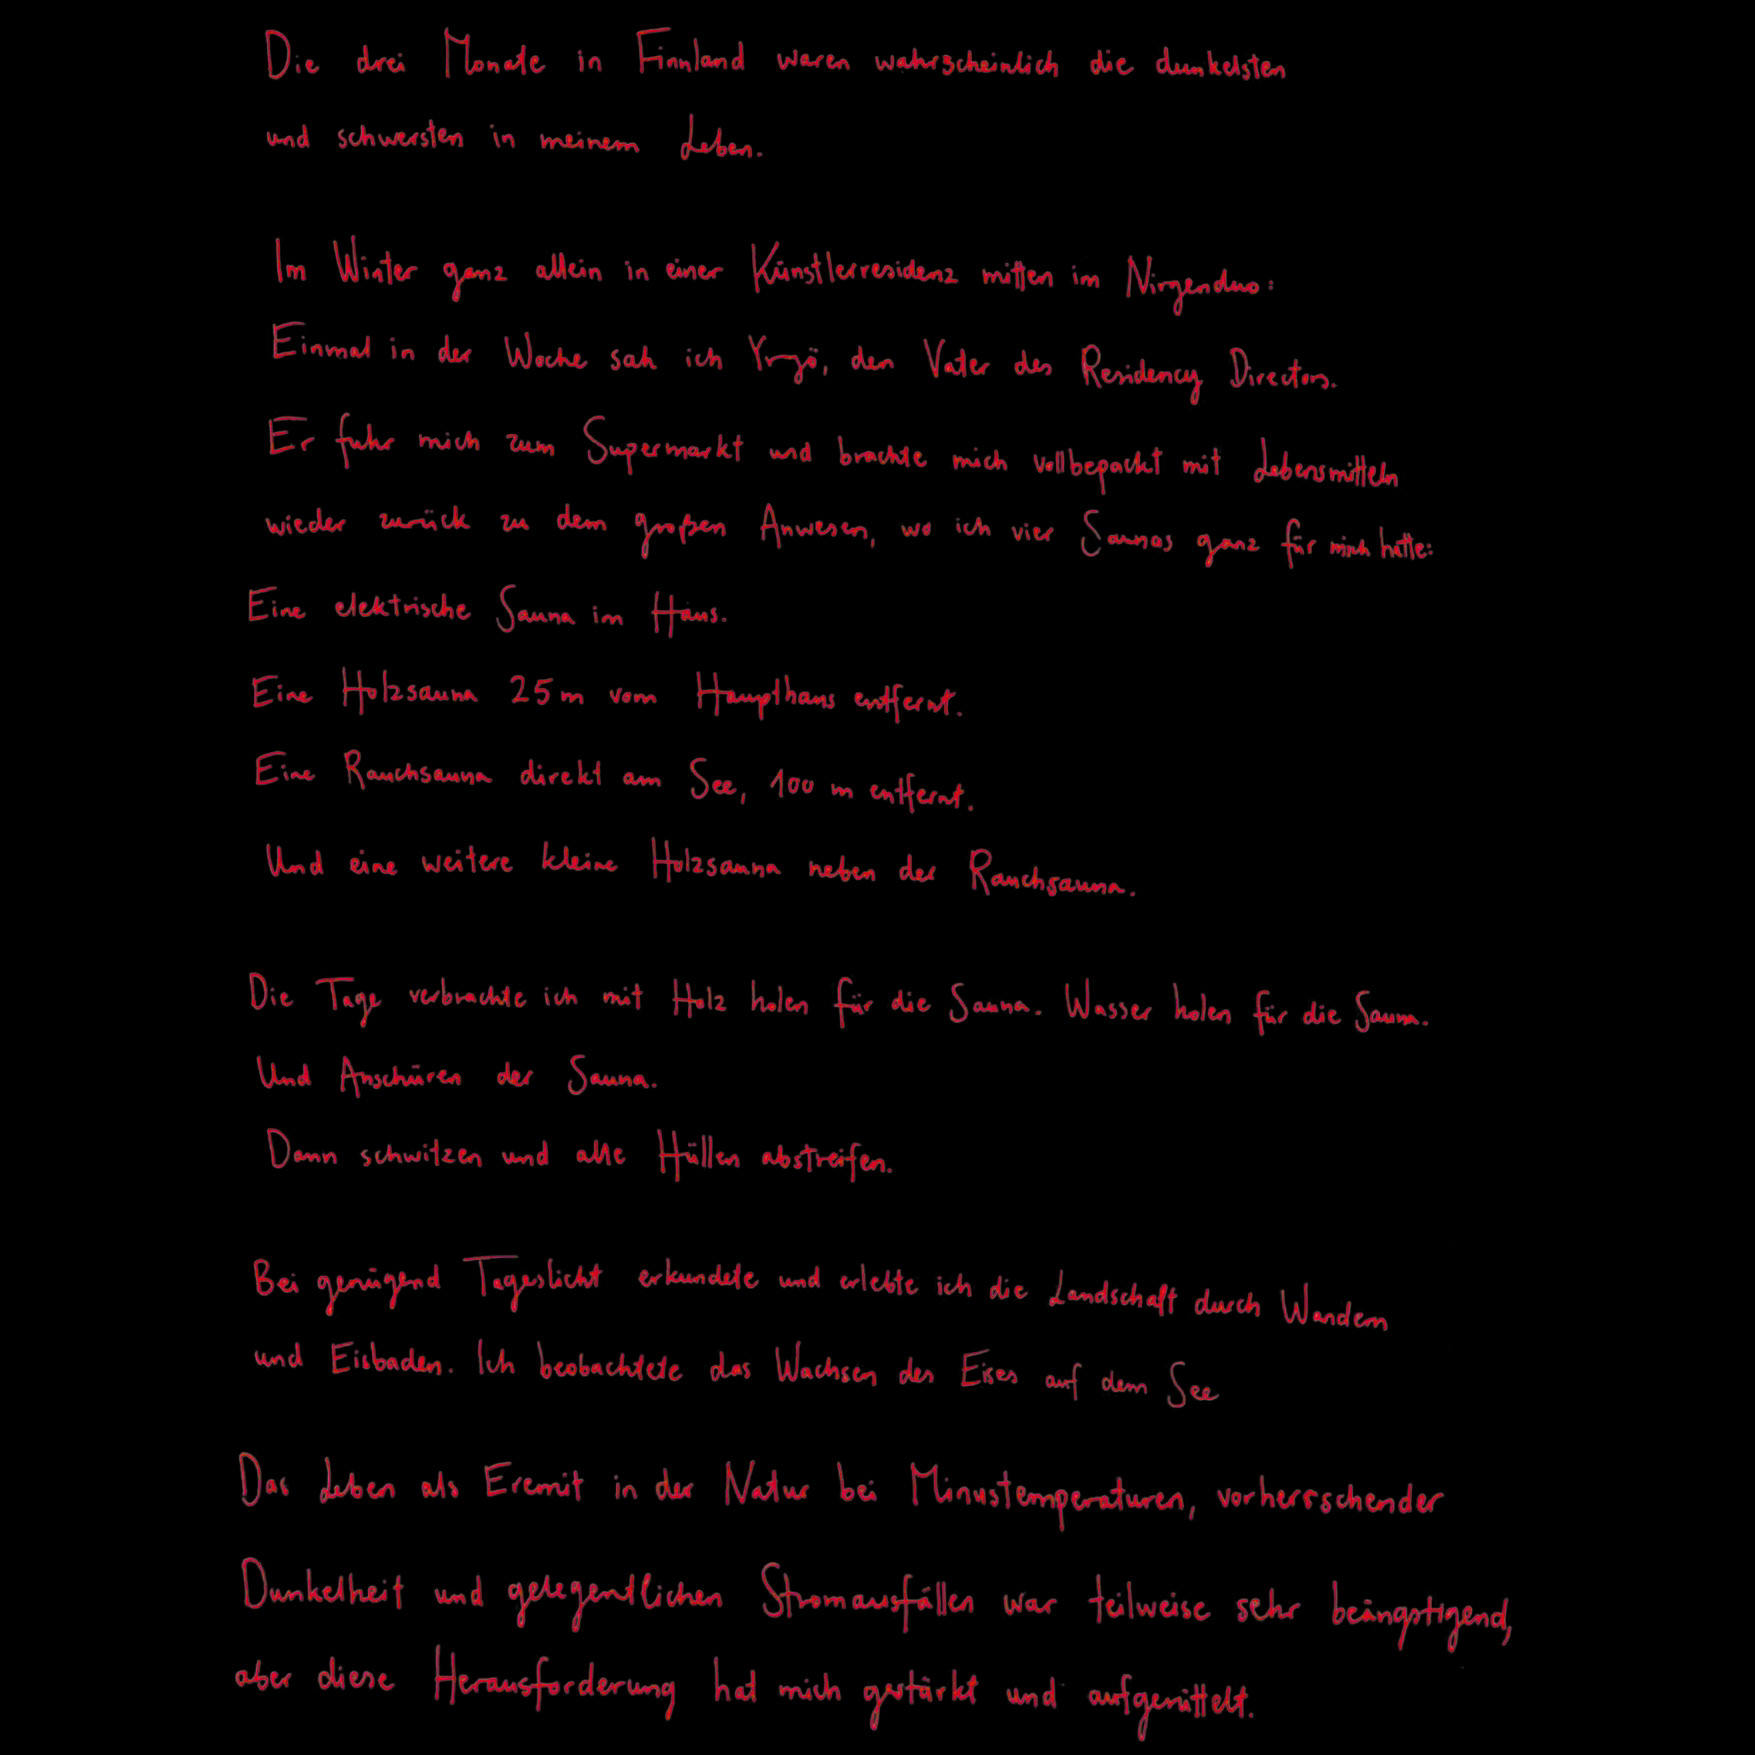 Die drei Monate in Finnland waren wahrscheinlich die dunkelsten
und schwersten in meinem Leben.
Im Winter ganz allein in einer Künstlerresidenz mitten im Nirgendwo:
Einmal in der Woche sah ich Yrjö, den Vater des Residency Directors.
Er fuhr mich zum Supermarkt und brachte mich vollbepackt mit Lebensmitteln
wieder zurück zu dem großen Anwesen, wo ich vier Saunas ganz für mich hatte:
Eine elektrische Sauna im Haus.
Eine Holzsauna 25 m vom Haupthaus entfernt.
Eine Rauchsauna direkt am See, 100 m entfernt.
Und eine weitere kleine Holzsauna neben der Rauchsauna.
Die Tage verbrachte ich mit Holz holen für die Sauna. Wasser holen für die Sauna.
Und Anschüren der Sauna.
Dann schwitzen und alle Hüllen abstreifen.
Bei genügend Tageslicht erkundete und erlebte ich die Landschaft durch Wandern
und Eisbaden. Ich beobachtete das Wachsen des Eises auf dem See
Das Leben als Eremit in der Natur bei Minustemperaturen, vorherrschender
Dunkelheit und gelegentlichen Stromausfällen war teilweise sehr beängstigend,
aber diese Herausforderung hat mich gestärkt und aufgerüttelt.